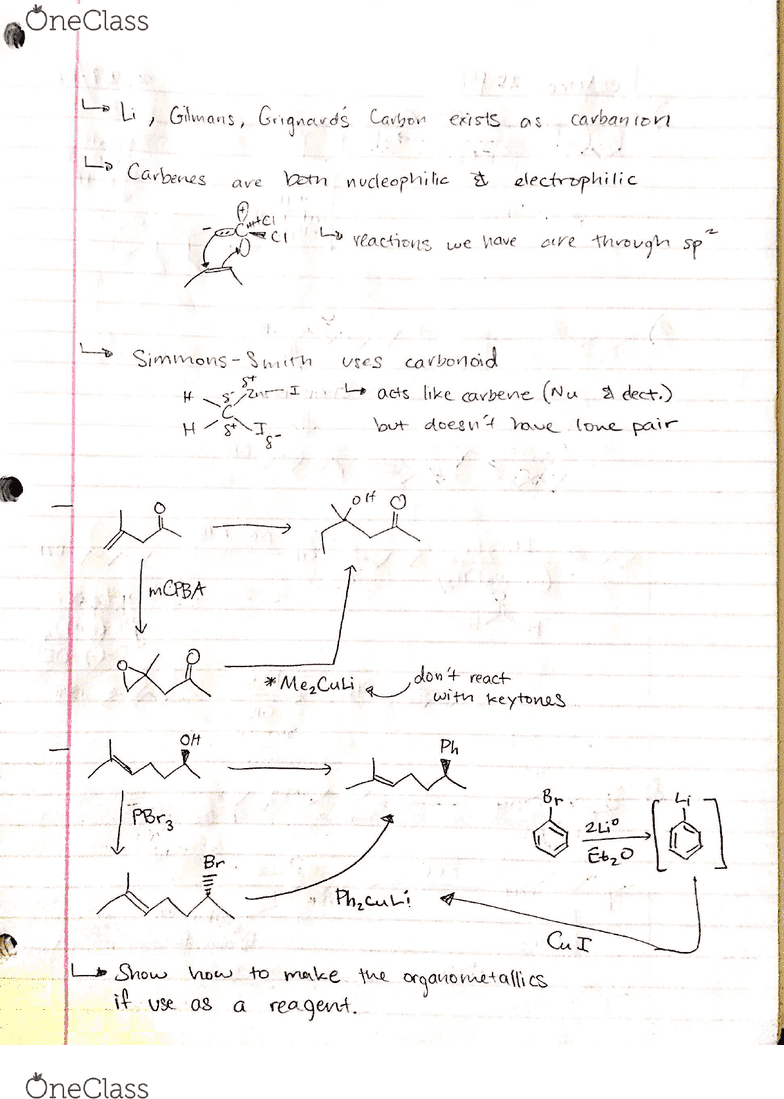 OneClass
↳ Li, Gilmans, Grignard's Carbon exists as carbanion
↳ Carbenes are both nucleophilic & electrophilic
Cl
- C Cl ↳ reactions we have are through sp²
↳ Simmons-Smith uses carbonoid
δ+
H δ- Zn I ↳ acts like carbene (Nu & elect.)
C
H δ+ I but doesn't have lone pair
δ-
OH O
O
mCPBA
O O
* Me₂CuLi don't react
with keytones
OH Ph
Br Li
PBr₃ 2Li⁰
Et₂O
Br
Ph₂CuLi
CuI
↳ Show how to make the organometallics
if use as a reagent.
OneClass